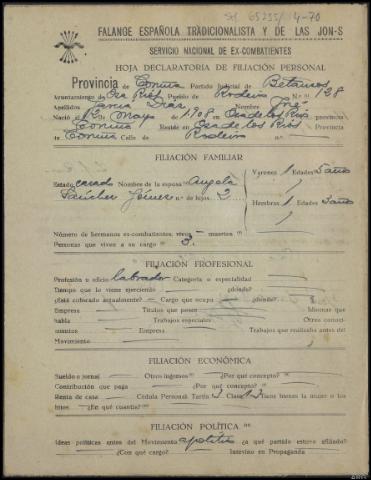 65255/4-70
FALANGE ESPAÑOLA TRADICIONALISTA Y DE LAS JON-S
SERVICIO NACIONAL DE EX-COMBATIENTES
HOJA DECLARATORIA DE FILIACIÓN PERSONAL
Provincia de Coruña Partido Judicial de Betanzos
Ayuntamiento de Oza Rios Pueblo de Rodeiro N.º 128
Apellidos García Días Nombre José
Nació el 12 Mayo 1.908 en Oza de los Rios provincia
Coruña Reside en Oza de los Rios Provincia
de Coruña Calle de Rodeiro n.º —
FILIACIÓN FAMILIAR
Varones 1 Edades 5 años
Estado casado Nombre de la esposa Angela
Sánchez Gómez n.º de hijos 2
Hembras 1 Edades 3 años
Número de hermanos ex-combatientes, vivos — muertos
Personas que viven a su cargo 3
FILIACIÓN PROFESIONAL
Profesión u oficio labrador Categoría o especialidad
Tiempo que lo viene ejerciendo ¿dónde?
¿Está colocado actualmente? — Cargo que ocupa ¿dónde?
Empresa Títulos que posee Idiomas que
habla Trabajos especiales Otros conoci-
mientos Empresa Trabajos que realizaba antes del
Movimiento
FILIACIÓN ECONÓMICA
Sueldo o jornal — Otros ingresos ¿Por qué concepto?
Contribución que paga ¿Por qué concepto?
Renta de casa Cédula Personal Tarifa Clase 13 Tiene bienes la mujer o los
hijos ¿En qué cuantía?
FILIACIÓN POLÍTICA
Ideas políticas antes del Movimiento apolitico ¿a qué partido estuvo afiliado?
¿Con qué cargo? Intervino en Propaganda